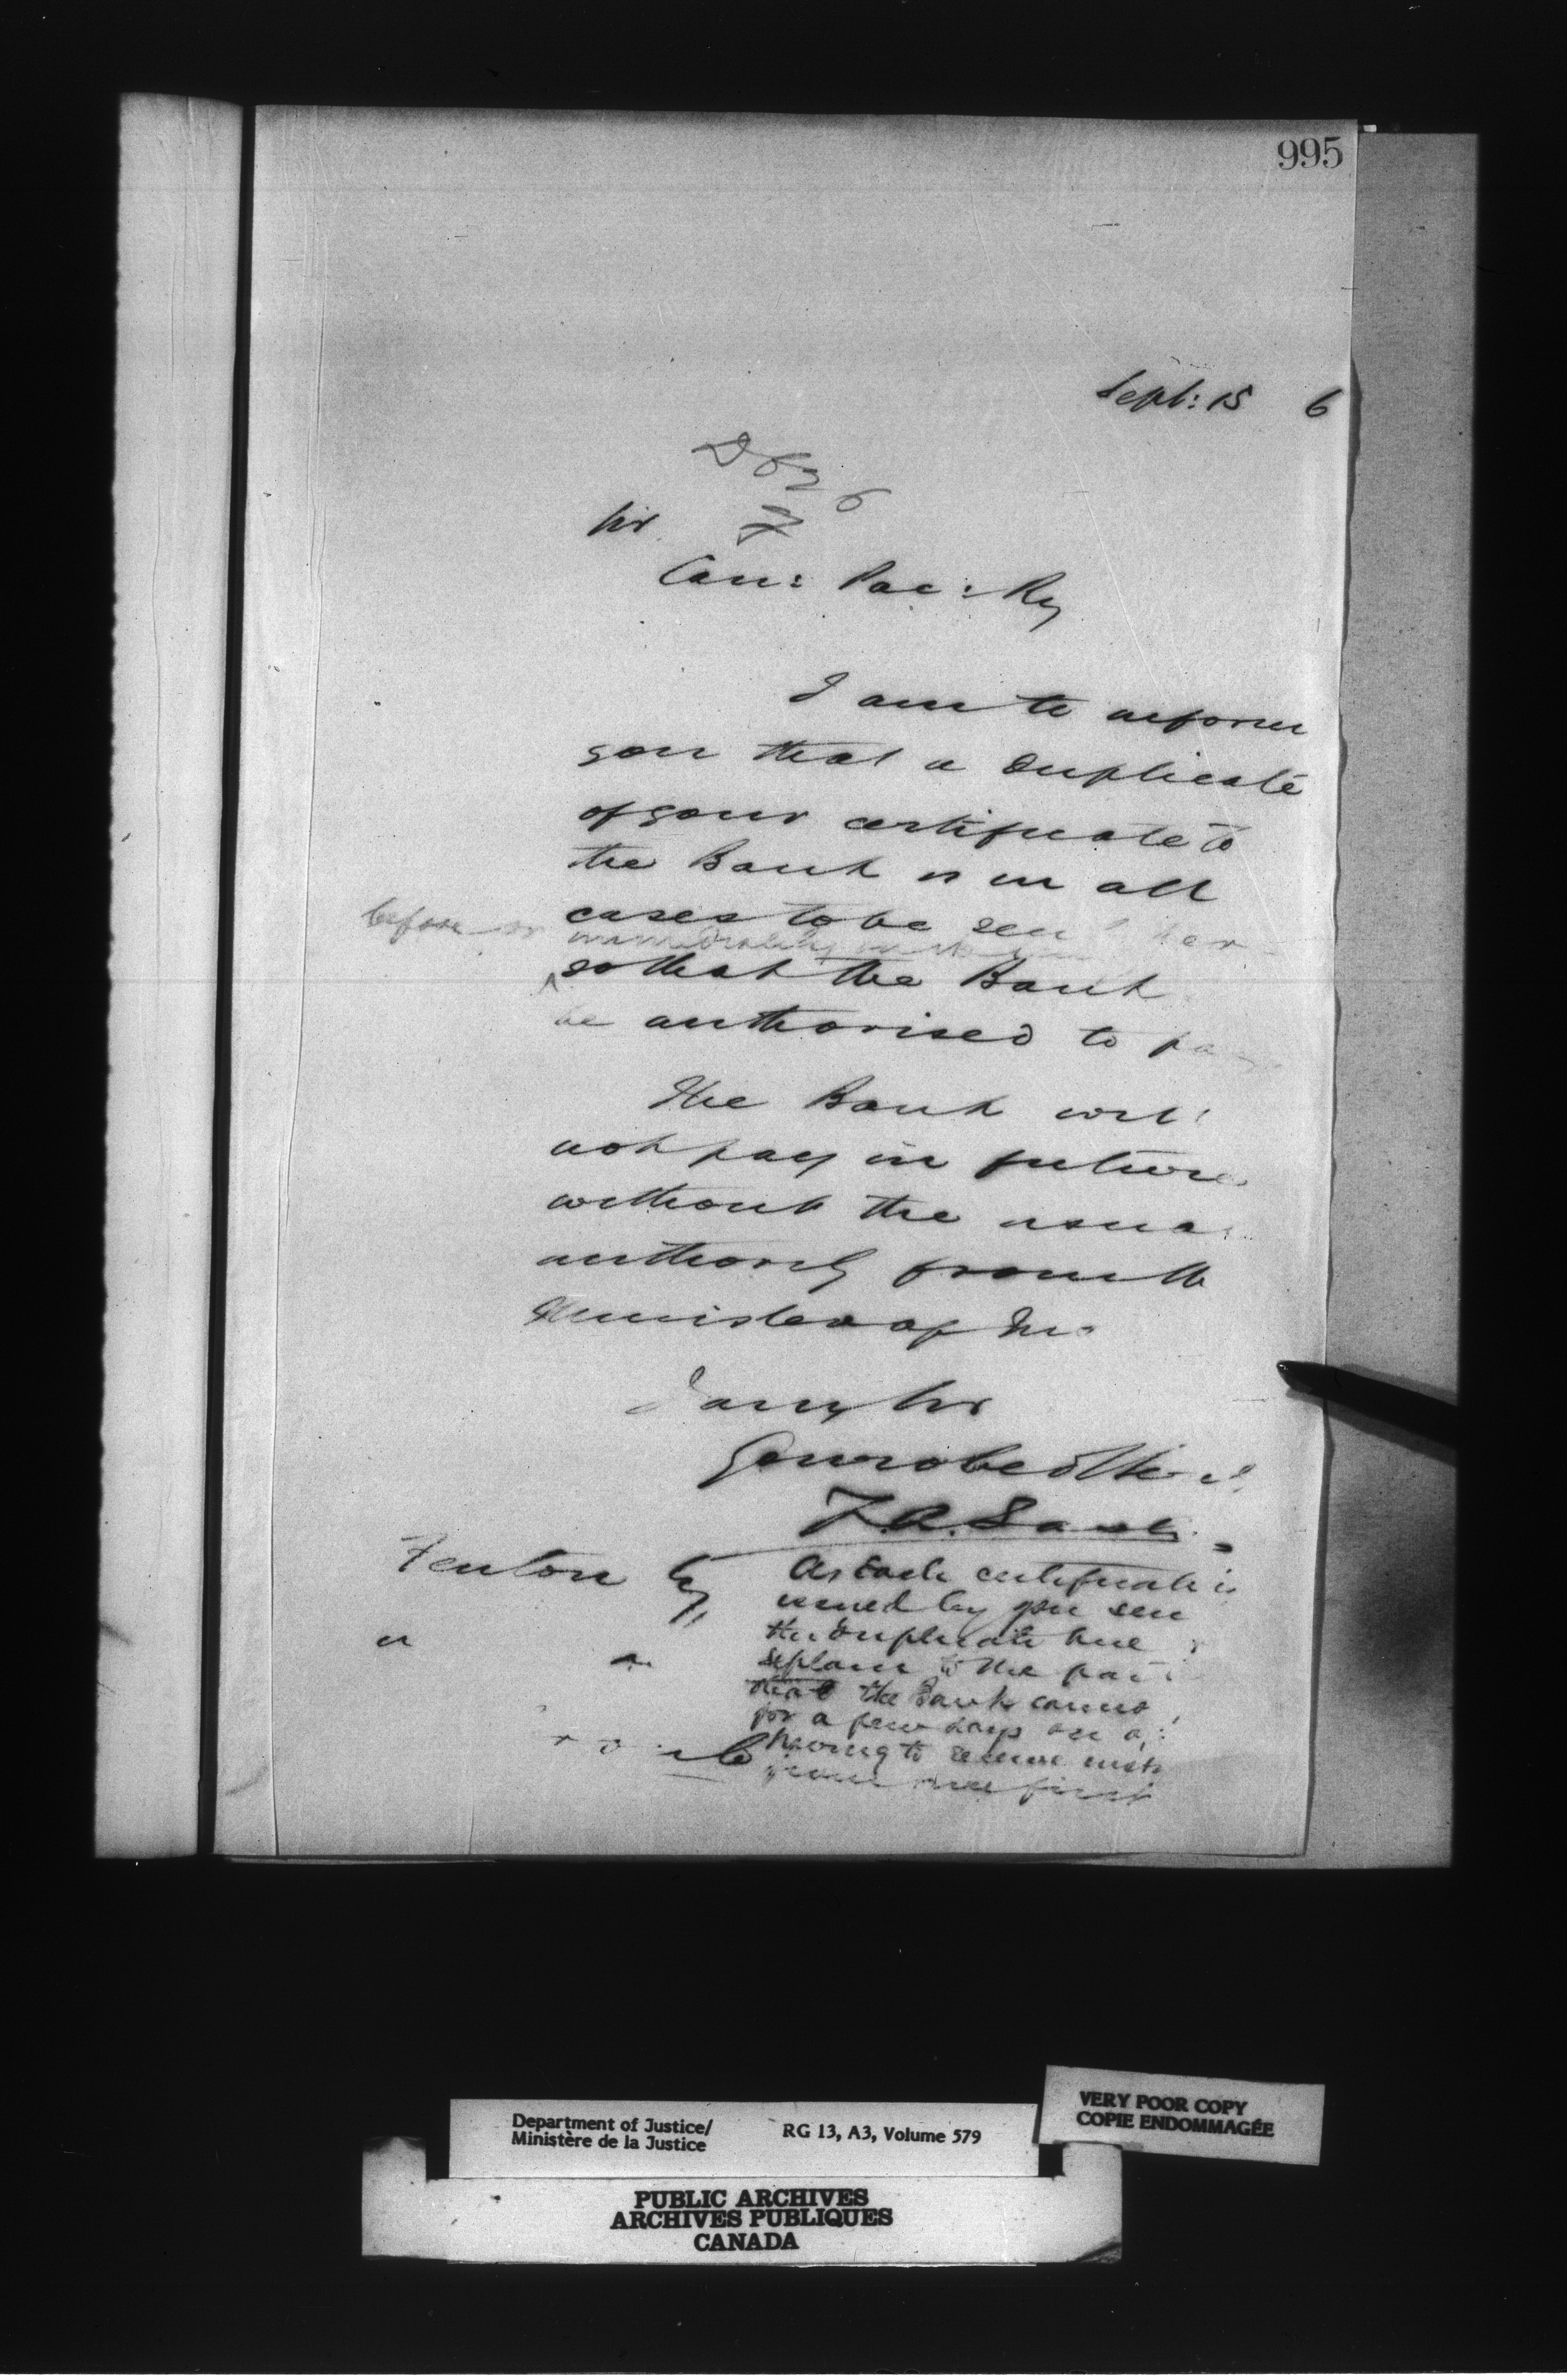 995
Sept: 15 6
Sir
Can: Pac: Ry
I am to inform
you that a duplicate
of your certificate to
the Bank is in all
cases to be sen
before or immediately
so that the Bank
be authorised to pa
The Bank wil
not pay in future
without the usua
authority from the
Minister of
I am, Sir
Your obed
Fenton Esq
As each certificate is
issued by you sen
the duplicate here
explain to the par
that the Bank canno
for a few days on a
having to receive inst
from here first
Department of Justice/
Ministère de la Justice
RG 13, A3, Volume 579
VERY POOR COPY
COPIE ENDOMMAGÉE
PUBLIC ARCHIVES
ARCHIVES PUBLIQUES
CANADA